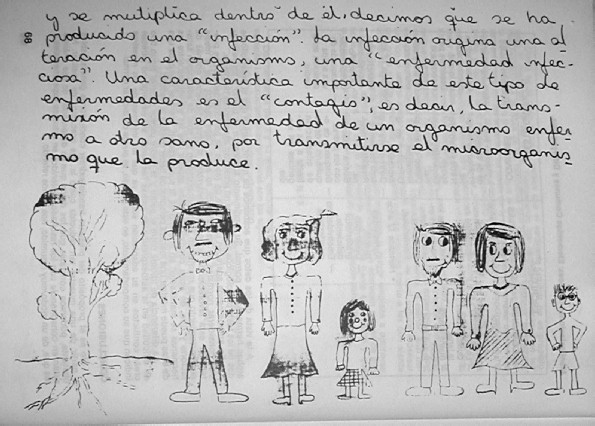 y se mutiplica dentro de él, decimos que se ha
producido una "infección". La infección origina una al
teración en el organismo, una "enfermedad infec-
ciosa". Una característica importante de este tipo de
enfermedades es el "contagio", es decir, la trans-
misión de la enfermedad de un organismo enfer
mo a otro sano, por transmitirse el microorganis
mo que la produce.
68